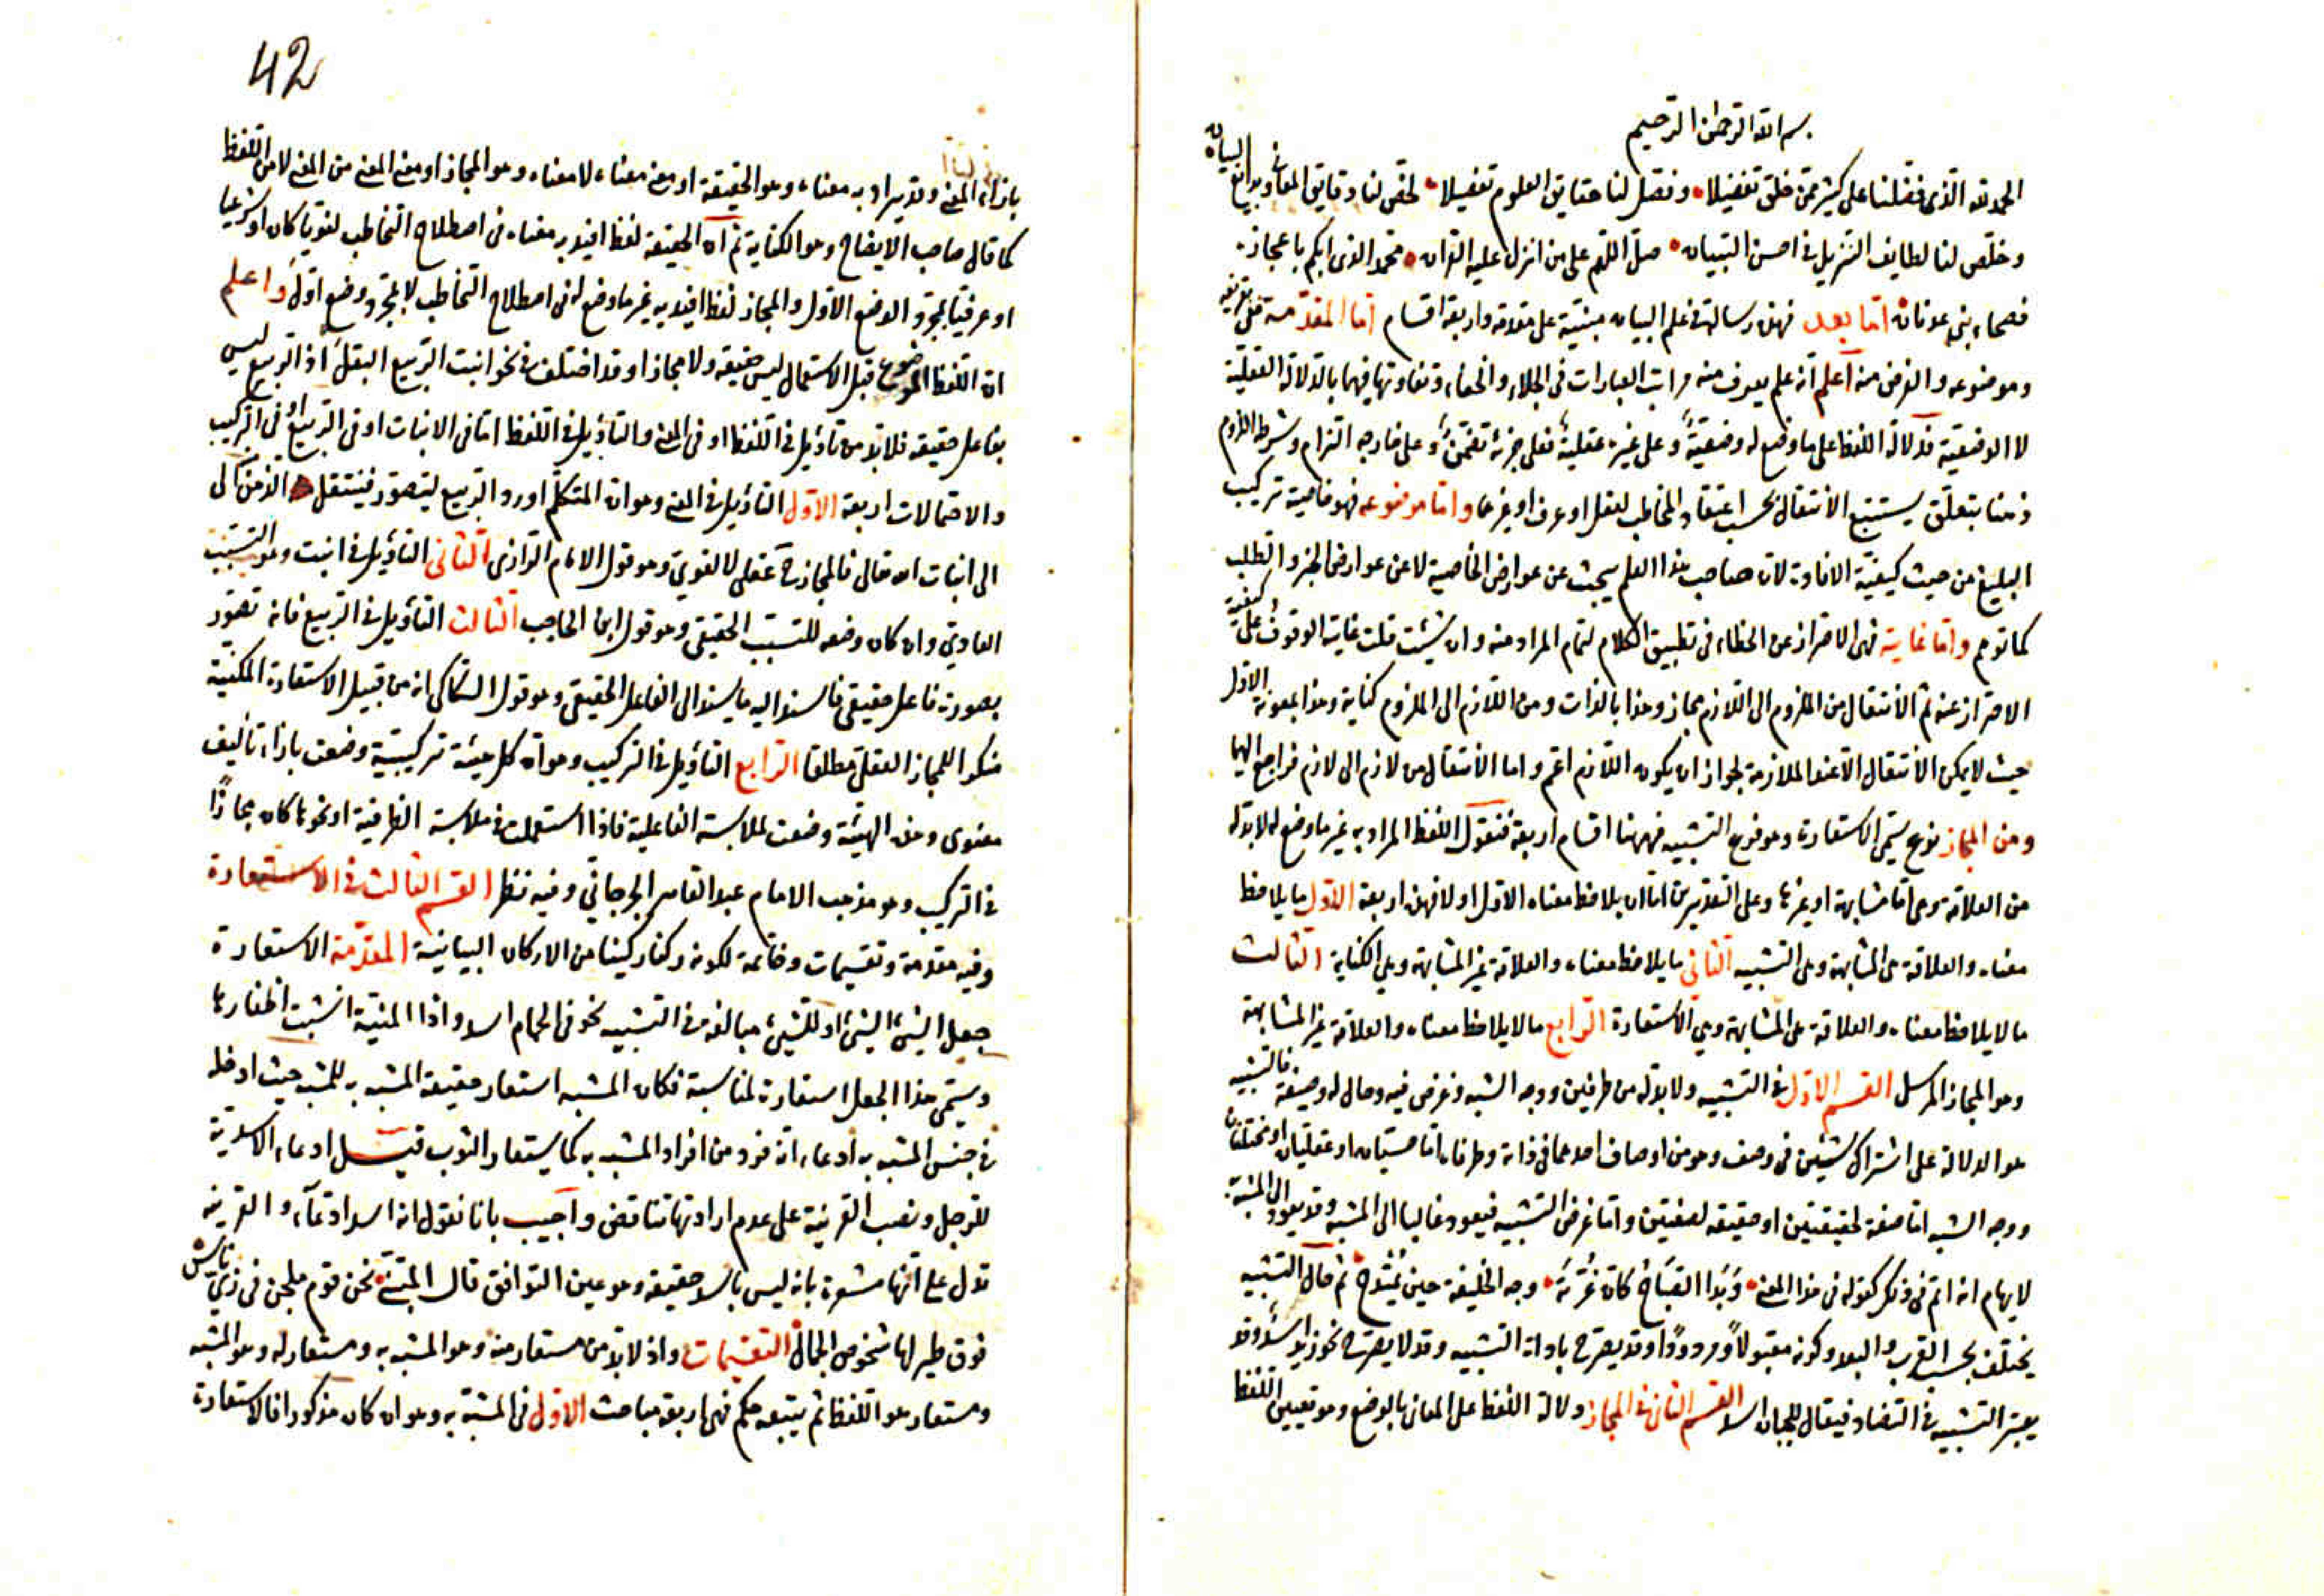 بسم الله الرحمن الرحيم
الحمد لله الذى فضلنا على كثير ممن خلق تفضيلا وفصل لنا حقايق العلوم تفصيلا لخص لنا دقايق المعانى وبدايع البيان
وخلص لنا لطايف التنزيل فى احسن التبيان صل اللهم على من انزل عليه القران محمد الذى ابكم باعجازه
فصحاء بنى عدنان اما بعد فهذه رسالة فى علم البيان مبنية على مقدمة واربعة اقسام اما المقدمة ففى تعريفه
وموضوعه والغرض منه اعلم انه علم يعرف منه مراتب العبارات فى الجلاء والخفاء وتفاوتها فيهما بالدلالة العقلية
لا الوضعية فدلالة اللفظ على ما وضع له وضعية وعلى غيره عقلية فعلى جزئه تضمن وعلى خارجه التزام وشرطه اللزوم
ذهنا بتعلق يستتبع الانتقال بحسب اعتقاد المخاطب لعقل او عرف او غيرهما واما موضوعه فهو خاصية تركيب
البليغ من حيث كيفية الافادة لان صاحب هذا العلم يبحث عن عوارض الخاصية لا عن عوارض الخبر والطلب
كما توهم واما غايته فهى الاحتراز عن الخطاء فى تطبيق الكلام لتمام المراد منه وان شئت قلت غايته الوقوف على كيفية
الاحتراز عنه ثم الانتقال من الملزوم الى اللازم مجاز وهذا بالذات ومن اللازم الى الملزوم كناية وهذا بمعونة الاول
حيث لا يمكن الانتقال الا عند الملازمة لجواز ان يكون اللازم اعم واما الانتقال من لازم الى لازم فراجع اليهما
ومن المجاز نوع يسمى الاستعارة وهو فرع التشبيه فههنا اقسام اربعة فنقول اللفظ المراد به غير ما وضع له لا بد له
من العلاقة وهى اما مشابهة او غيرها وعلى التقديرين اما ان يلاحظ معناه الاول او لا فهذه اربعة الاول ما يلاحظ
معناه والعلاقة هى المشابهة وهى التشبيه الثانى ما يلاحظ معناه والعلاقة غير المشابهة وهى الكناية الثالث
ما لا يلاحظ معناه والعلاقة هى المشابهة وهى الاستعارة الرابع ما لا يلاحظ معناه والعلاقة غير المشابهة
وهو المجاز المرسل القسم الاول فى التشبيه ولا بد له من طرفين ووجه الشبه وغرض فيه وحال له وصيغة فالتشبيه
هو الدلالة على اشتراك شيئين فى وصف وهو من اوصاف احدهما فى ذاته وطرفاه اما حسيان او عقليان او مختلفان
ووجه الشبه اما صفة لحقيقتين او حقيقة لصفتين واما غرض التشبيه فيعود غالبا الى المشبه وقد يعود الى المشبه به
لايهام انه اتم فى وذكر كقوله فى هذا المعنى وبدا الصباح كان غرته وجه الخليفة حين يمتدح ثم حال التشبيه
يختلف بحسب القرب والبعد وكونه مقبولا ومردودا وقد يصرح باداة التشبيه وقد لا يصرح نحو زيد اسد وقد
يعتبر التشبيه فى التضاد فيقال للجبان اسد القسم الثانى فى المجاز دلالة اللفظ على المعانى بالوضع وهو تعيين اللفظ
42
بازاء المعنى وقد يراد به معناه وهو الحقيقة او معنى معناه لا معناه وهو المجاز او معنى المعنى من المعنى لا من اللفظ
كما قال صاحب الايضاح وهو الكناية ثم ان الحقيقة لفظ افيد به معناه فى اصطلاح التخاطب لغويا كان او شرعيا
او عرفيا بمجرد الوضع الاول والمجاز لفظ افيد به غير ما وضع له فى اصطلاح التخاطب لا بمجرد وضع اول واعلم
ان اللفظ الموضوع قبل الاستعمال ليس حقيقة ولا مجازا وقد اختلف فى نحو انبت الربيع البقل اذ الربيع ليس
بفاعل حقيقة فلا بد من تأويل فى اللفظ او فى المعنى والتأويل فى اللفظ اما فى الانبات او فى الربيع او فى التركيب
والاحتمالات اربعة الاول التأويل فى المعنى وهو ان المتكلم اورد الربيع ليتصور فينتقل الذهن الى
الى انبات الله تعالى فالمجاز ح عقلى لا لغوى وهو قول الامام الرازى الثانى التأويل فى انبت وهو التسبب
العادى وان كان وضعه للتسبب الحقيقى وهو قول ابن الحاجب الثالث التأويل فى الربيع فانه تصور
بصورة فاعل حقيقى فاسند اليه ما يسند الى الفاعل الحقيقى وهو قول السكاكى انه من قبيل الاستعارة المكنية
منكرا للمجاز العقلى مطلقا الرابع التأويل فى التركيب وهو ان كل هيئة تركيبية وضعت بازاء تأليف
معنوى وهذه الهيئة وضعت لملابسة الفاعلية فاذا استعملت فى ملابسة الظرفية او نحوها كان مجازا
فى التركيب وهو مذهب الامام عبد القاهر الجرجانى وفيه نظر القسم الثالث فى الاستعارة
وفيه مقدمة وتقسيمات وخاتمة لكونه ركنا ركينا من الاركان البيانية المقدمة الاستعارة
جعل الشئ الشئ او للشئ مبالغة فى التشبيه نحو فى الحمام اسد واذا المنية انشبت اظفارها
ويسمى هذا الجعل استعارة لمناسبة فكان المشبه استعار حقيقة المشبه به للمشبه حيث ادخله
فى جنس المشبه به ادعاء انه فرد من افراد المشبه به كما يستعار الثوب قيل ادعاء الاسدية
للرجل ونصب القرينة على عدم ارادتها تناقض واجيب بانا نقول انه اسد ادعاء والقرينة
تدل على انها مشعرة بانه ليس باسد حقيقة وهو عين التوافق قال المتنبى نحن قوم ملجن فى زى ناس
فوق طير لها شخوص الجمال التقسيمات واذ لا بد من مستعار منه وهو المشبه به ومستعار له وهو المشبه
ومستعار هو اللفظ ثم يتبعه حكم فهى اربعة مباحث الاول فى المشبه به وهو ان كان مذكورا فالاستعارة